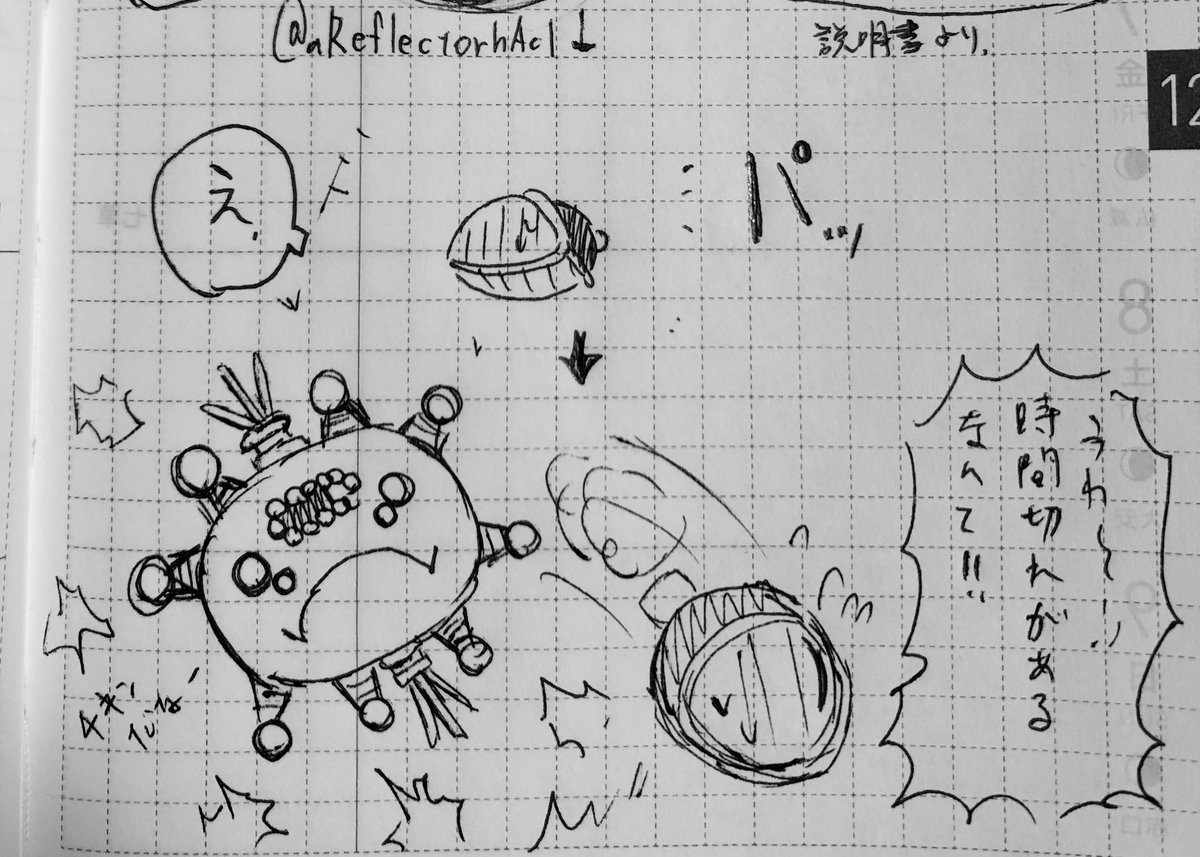 @aReflectorhAcl↓
説明書より.
12
え.
パ…ッ
うわ〜〜!
時間切れがある
なんて!!
金
8
土
9